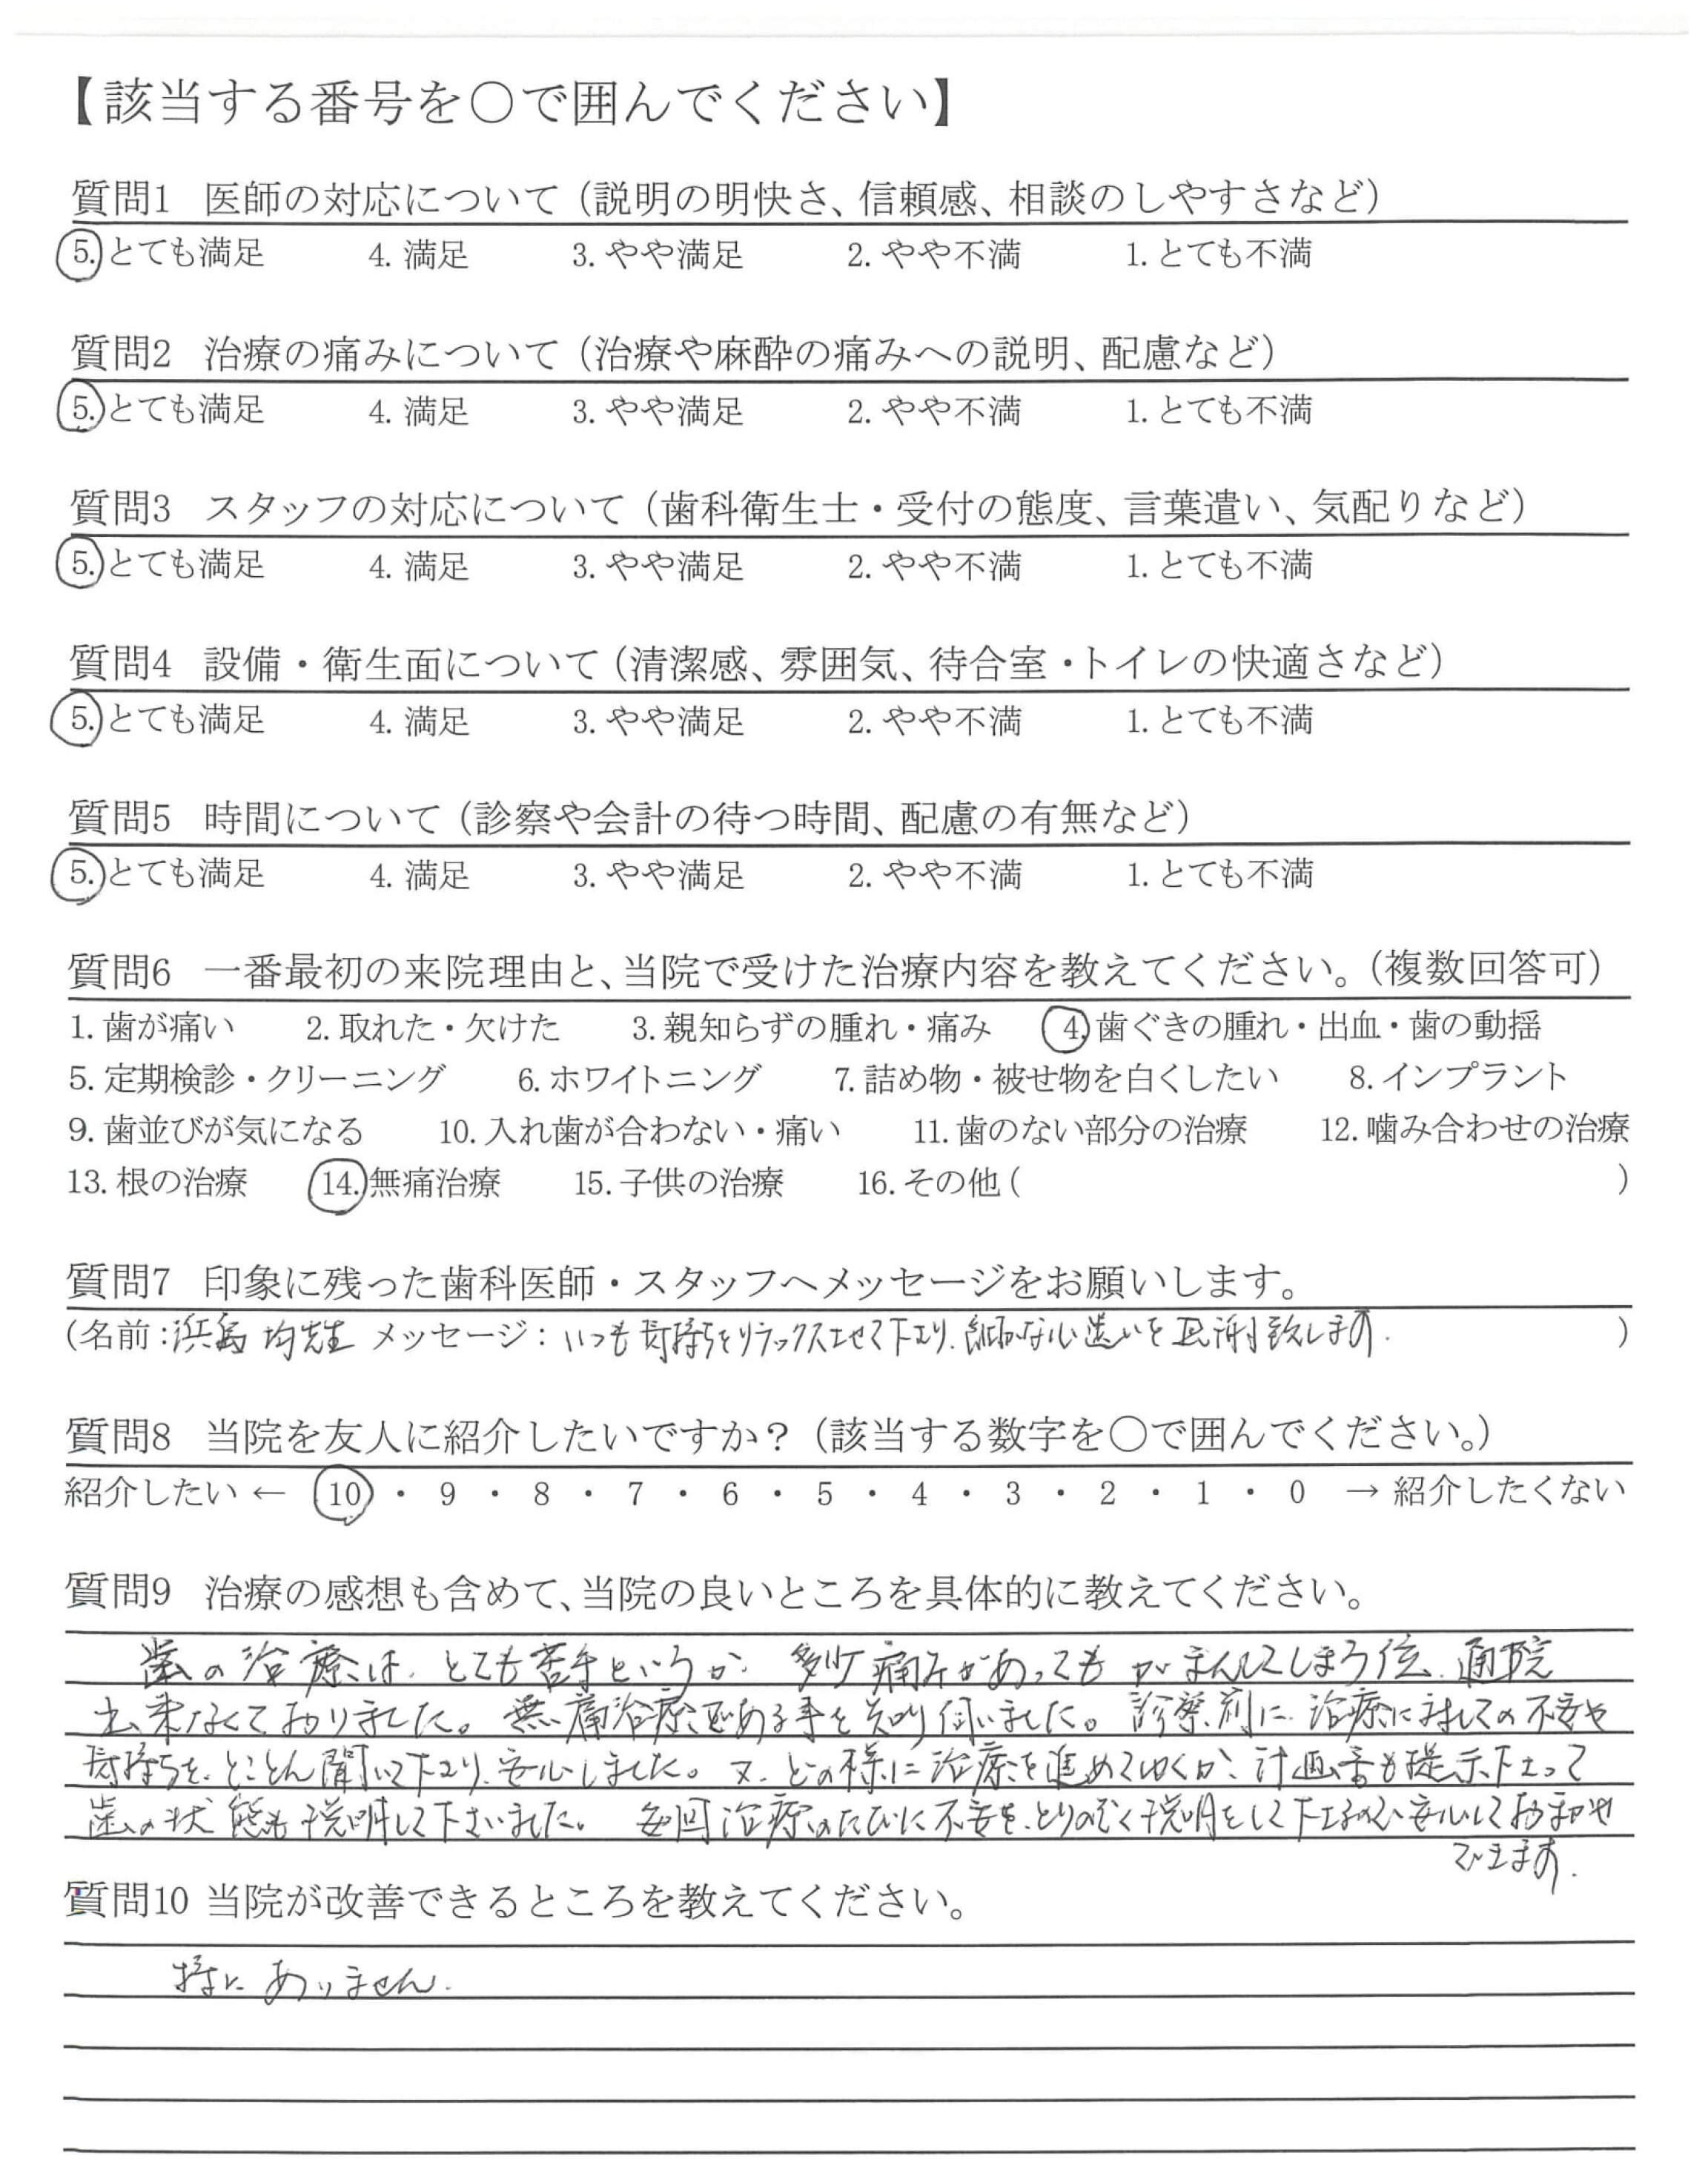 【該当する番号を〇で囲んでください】
質問1 医師の対応について（説明の明快さ、信頼感、相談のしやすさなど）
5. とても満足 4. 満足 3. やや満足 2. やや不満 1. とても不満
質問2 治療の痛みについて（治療や麻酔の痛みへの説明、配慮など）
5. とても満足 4. 満足 3. やや満足 2. やや不満 1. とても不満
質問3 スタッフの対応について（歯科衛生士・受付の態度、言葉遣い、気配りなど）
5. とても満足 4. 満足 3. やや満足 2. やや不満 1. とても不満
質問4 設備・衛生面について（清潔感、雰囲気、待合室・トイレの快適さなど）
5. とても満足 4. 満足 3. やや満足 2. やや不満 1. とても不満
質問5 時間について（診察や会計の待つ時間、配慮の有無など）
5. とても満足 4. 満足 3. やや満足 2. やや不満 1. とても不満
質問6 一番最初の来院理由と、当院で受けた治療内容を教えてください。（複数回答可）
1. 歯が痛い 2. 取れた・欠けた 3. 親知らずの腫れ・痛み 4. 歯ぐきの腫れ・出血・歯の動揺
5. 定期検診・クリーニング 6. ホワイトニング 7. 詰め物・被せ物を白くしたい 8. インプラント
9. 歯並びが気になる 10. 入れ歯が合わない・痛い 11. 歯のない部分の治療 12. 噛み合わせの治療
13. 根の治療 14. 無痛治療 15. 子供の治療 16. その他（ ）
質問7 印象に残った歯科医師・スタッフへメッセージをお願いします。
（名前：浜島 均先生 メッセージ：いつも気持ちをリラックスさせて下さり、細かな心遣いを感謝致します. ）
質問8 当院を友人に紹介したいですか？（該当する数字を〇で囲んでください。）
紹介したい ← 10 ・ 9 ・ 8 ・ 7 ・ 6 ・ 5 ・ 4 ・ 3 ・ 2 ・ 1 ・ 0 → 紹介したくない
質問9 治療の感想も含めて、当院の良いところを具体的に教えてください。
歯の治療は、とても苦手というか、多少痛みがあっても がまんしてしまう位、通院
出来なくておりました。無痛治療である事を知り伺いました。診察前に、治療に対しての不安や
気持ちを、とことん聞いて下さり、安心しました。又、どの様に治療を進めてゆくか、計画書も提示下さって
歯の状態も説明して下さいました。毎回治療のたびに不安を、とりのぞく説明をして下さるので安心しておまかせ
できます.
質問10 当院が改善できるところを教えてください。
特に ありません.